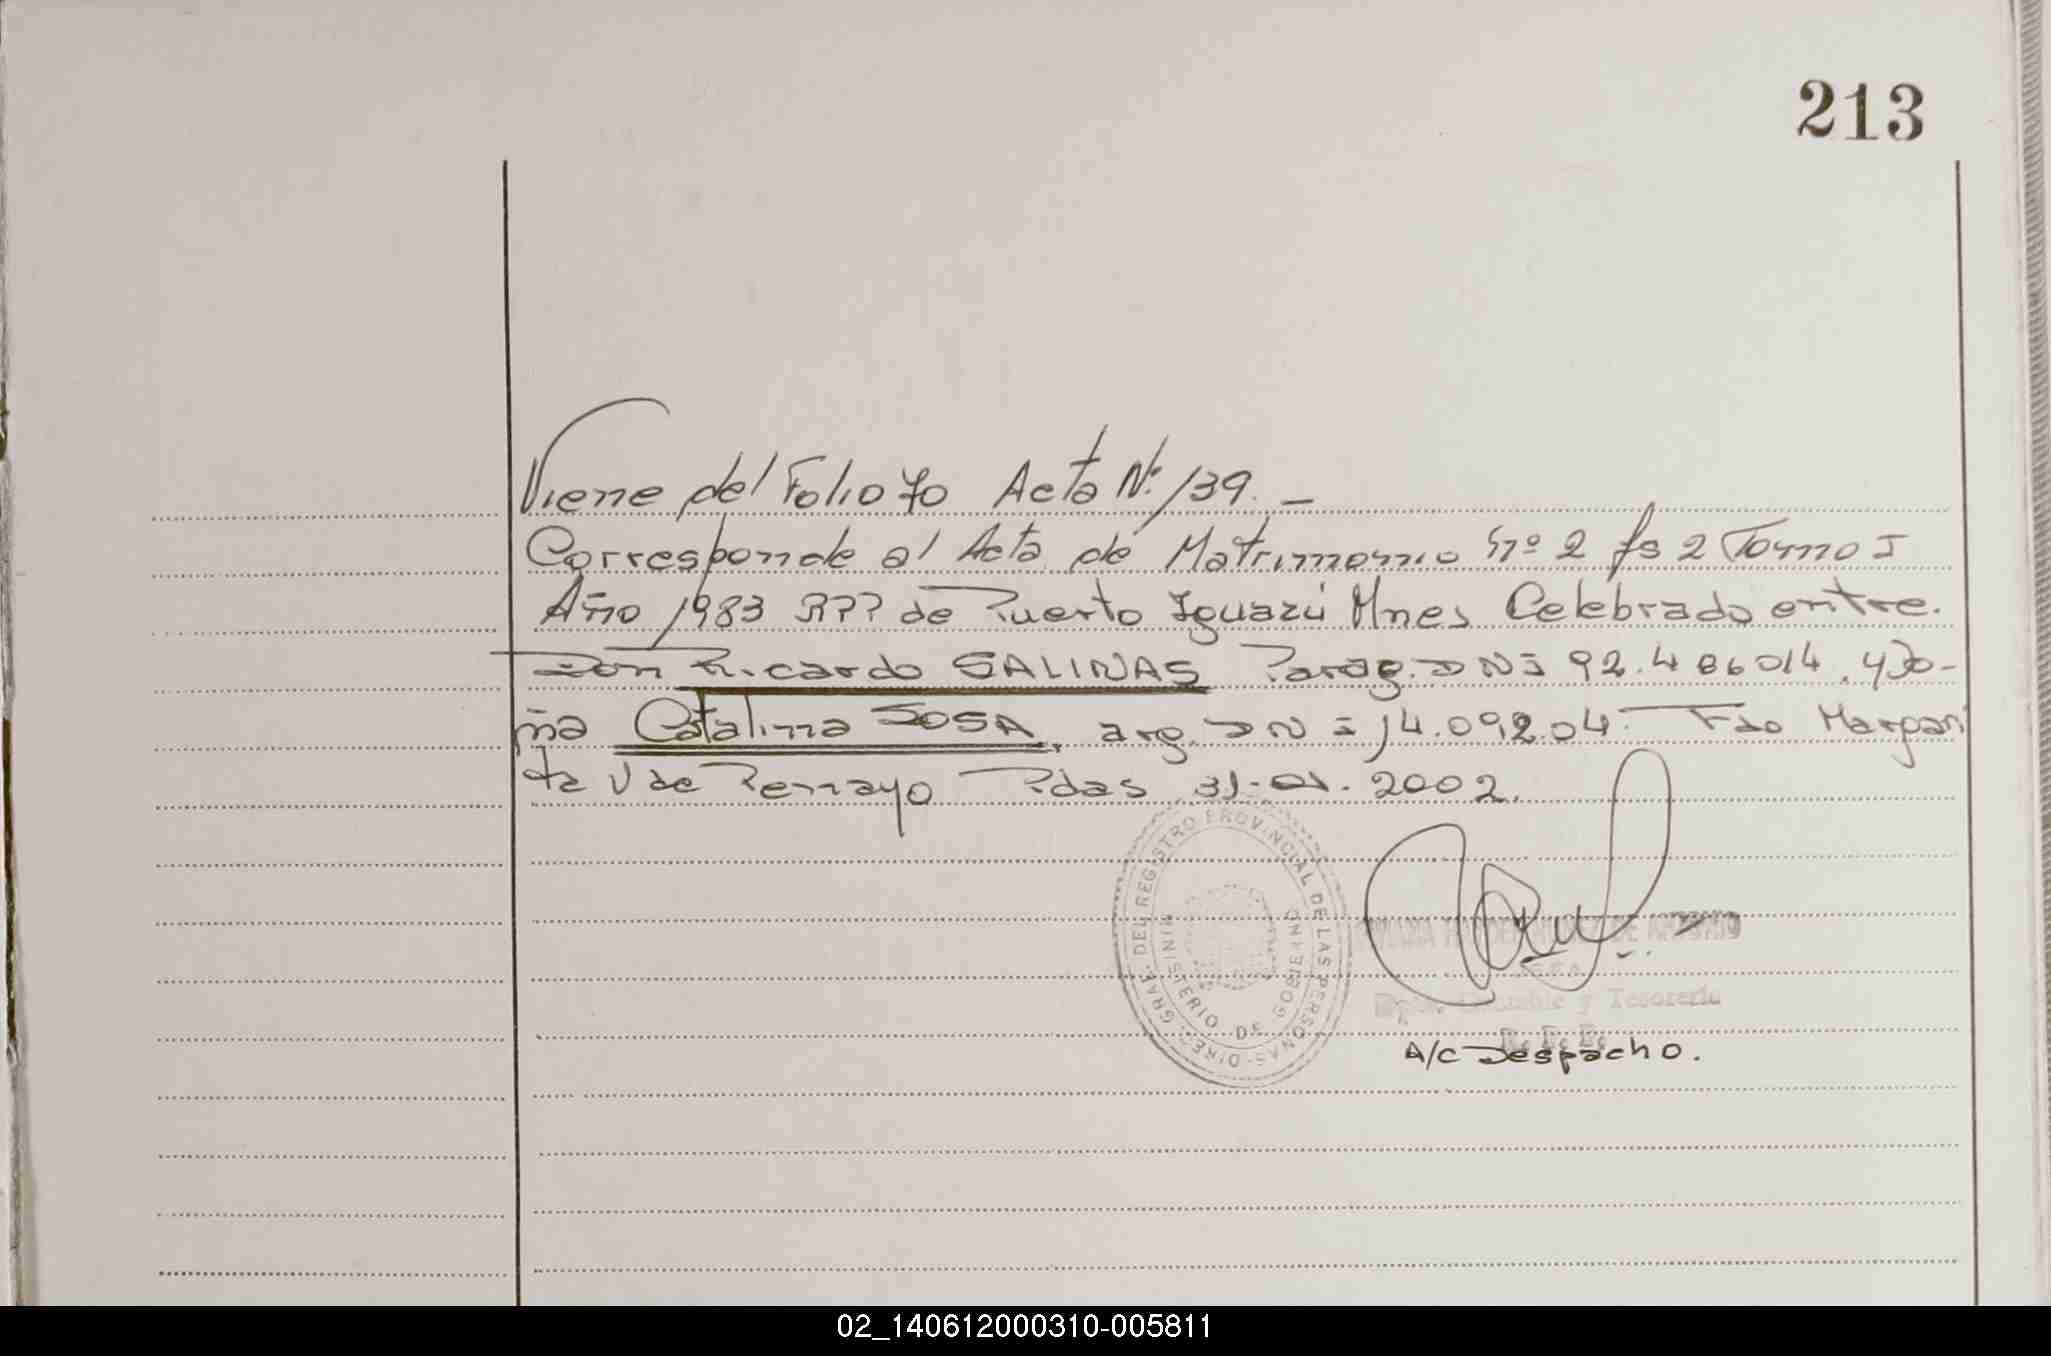 213
Viene del Folio 70 Acta Nº 139. —
Corresponde al Acta de Matrimonio Nº 2 fs 2 Tomo I
Año 1983 RPP de Puerto Iguazú Mnes Celebrado entre.
Don Ricardo SALINAS Parag. DNI 92.486014. y Do-
ña Catalina SOSA. arg. DNI 14.092.04. Fdo Margari
ta V de Pdas 31-01-2002.
DIREC. GRAL. DEL REGISTRO PROVINCIAL DE LAS PERSONAS
MINISTERIO DE GOBIERNO
DE
JEFA
Dpto. Contable y Tesorería
R. P. P.
A/C Despacho.
02_140612000310-005811